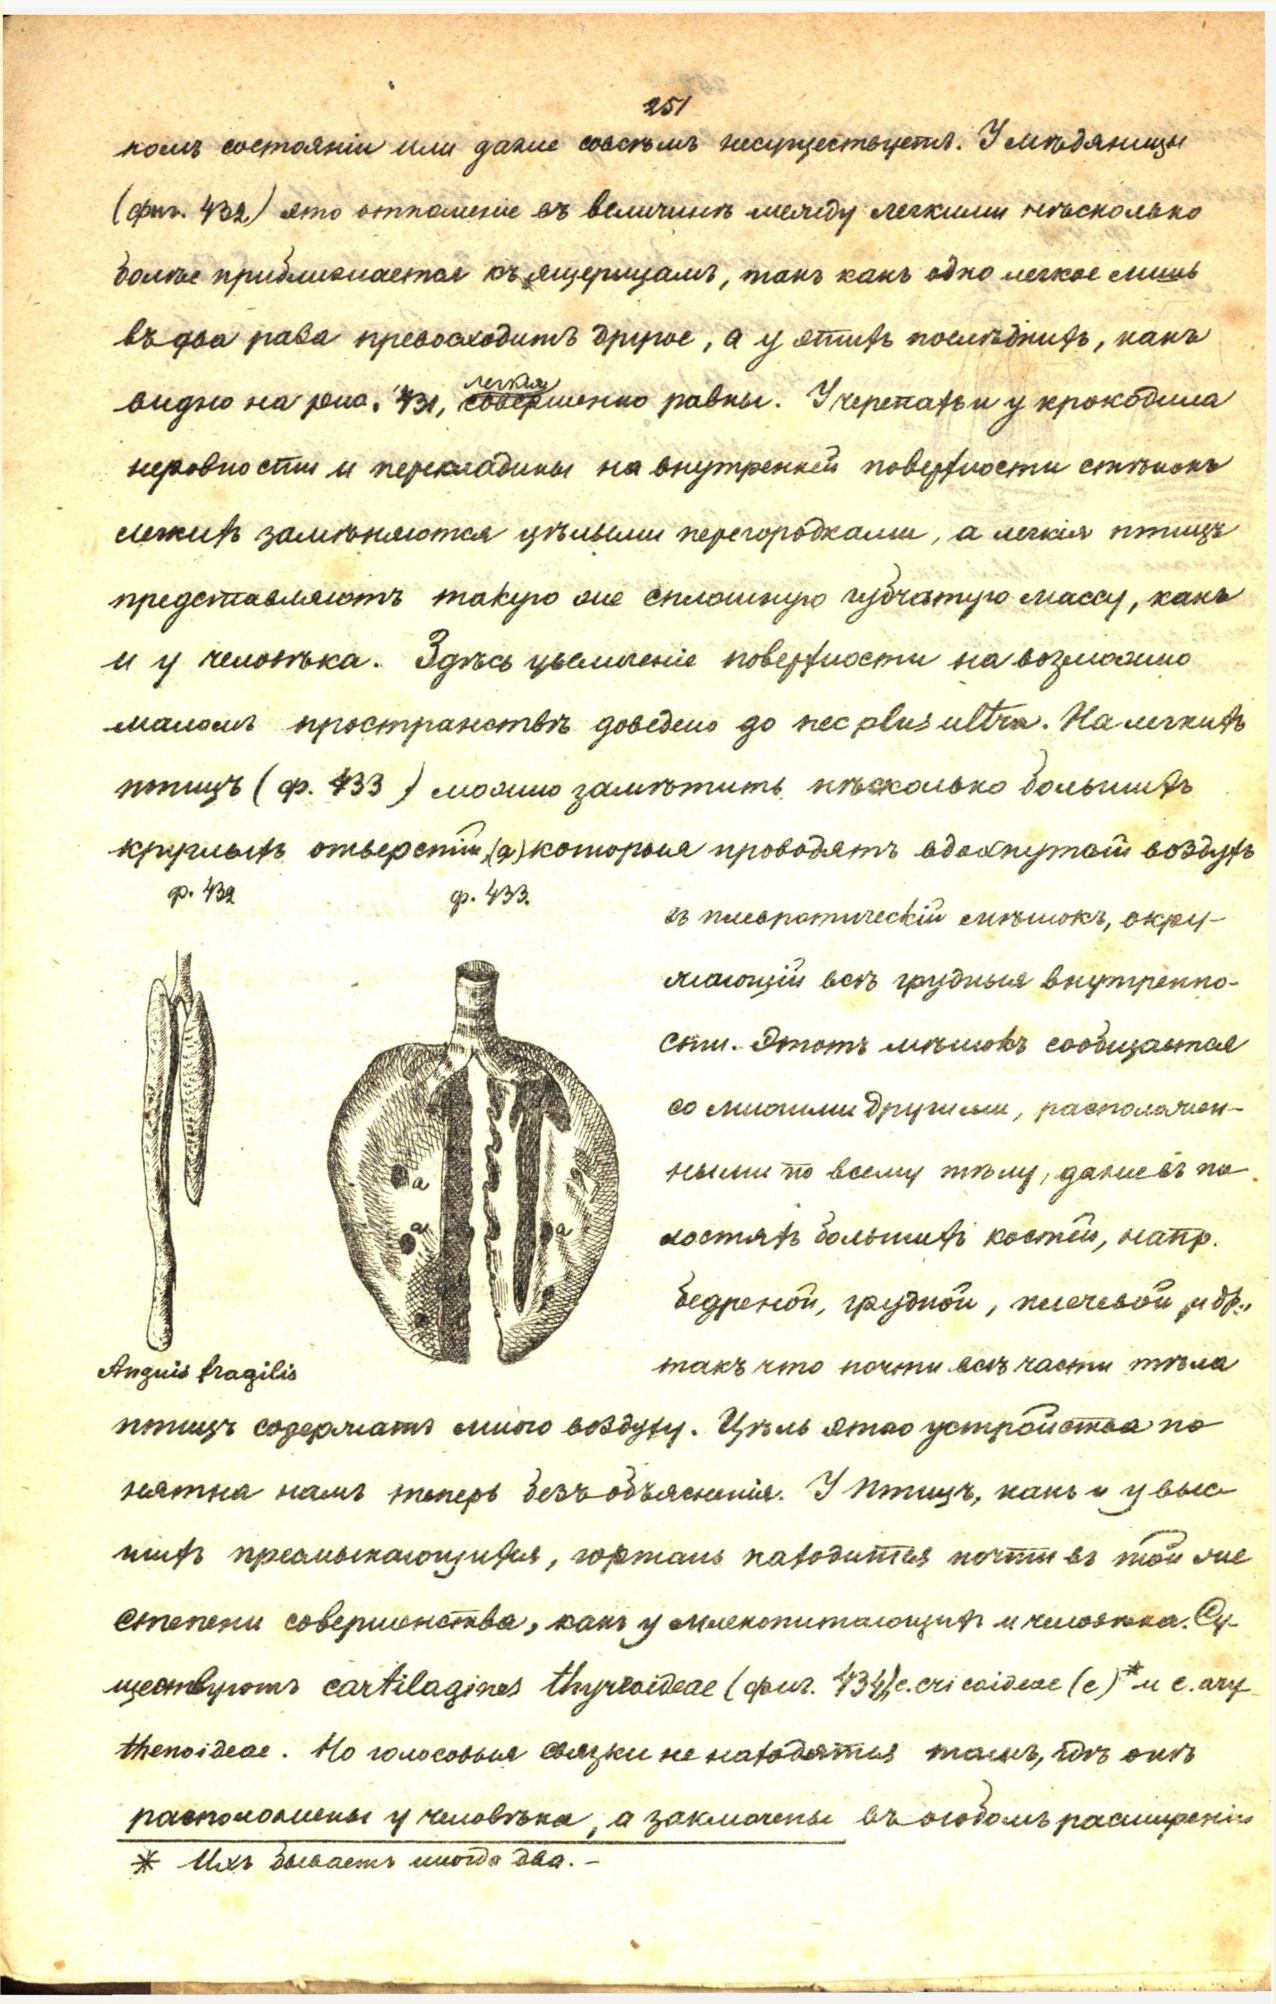 251
комъ состоянiи или даже совсѣмъ несуществуетъ. У мѣдяницы
(фиг. 432) это отношенiе въ величинѣ между легкими нѣсколько
болѣе приближается къ ящерицамъ, такъ какъ одно легкое лишь
въ два раза превосходитъ другое, а у этихъ послѣднихъ, какъ
видно на рис. 431, легкiя совершенно равны. У черепахъ и у крокодила
неровности и перекладины на внутренней поверхности стѣнокъ
легкихъ замѣняются цѣлыми перегородками, а легкiя птицъ
представляютъ такую же сплошную губчатую массу, какъ
и у человѣка. Здѣсь увеличенiе поверхности на возможно
маломъ пространствѣ доведено до nec plus ultra. На легкихъ
птицъ (ф. 433) можно замѣтить нѣсколько большихъ
круглыхъ отверстiй, (a) которыя проводятъ вдохнутый воздухъ
ф. 432
ф. 433.
въ плевротическiй мѣшокъ, окру-
жающiй всѣ грудныя внутренно-
сти. Этотъ мѣшокъ сообщается
со многими другими, расположен-
ными по всему тѣлу, даже въ по
лостяхъ большихъ костей, напр.
бедреной, грудной, плечевой и др.,
a
a
a
Anguis fragilis
такъ что почти всѣ части тѣла
птицъ содержатъ много воздуху. Цѣль этаго устройства по
нятна намъ теперь безъ объясненiя. У птицъ, какъ и у выс
шихъ пресмыкающихся, гортань находится почти въ той же
степени совершенства, какъ у млекопитающихъ и человѣка. Су-
ществуютъ cartilagines thyreoideae (фиг. 434), c. cricoideae (c)* и c. ary
thenoideae. Но голосовыя связки не находятся тамъ, гдѣ онѣ
расположены у человѣка, а заключены въ особомъ расширенiи
* Ихъ бываетъ иногда два. –